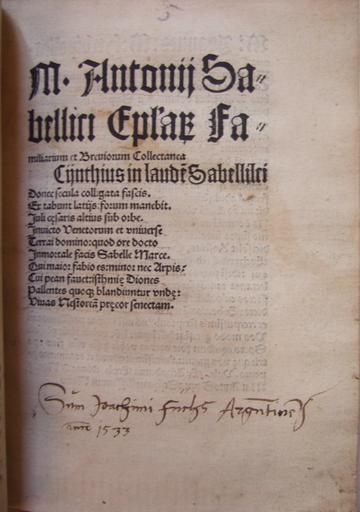 5
M. Antonij Sa-
bellici Epl'aꝝ Fa-
miliarium et Breuiorum Collectanea
Cijnthius in laudē Sabellici
Donec secula colligata fascis.
Et rabunt latijs. forum manebit.
Juli cęsaris altius sub orbe.
Inuicto Venetorum et vniuerse
Terrai domino: quod ore docto
Inmortale facis Sabelle Marce.
Qui maior fabio es: minor nec Arpis:
Cui pean fauet: isthmię Diones
Pallentes quoqȝ blandiuntur vndę:
Viuas Nestoreā pręcor senectam.
Sum Joachimi fuchs Argentinen
anno 1533